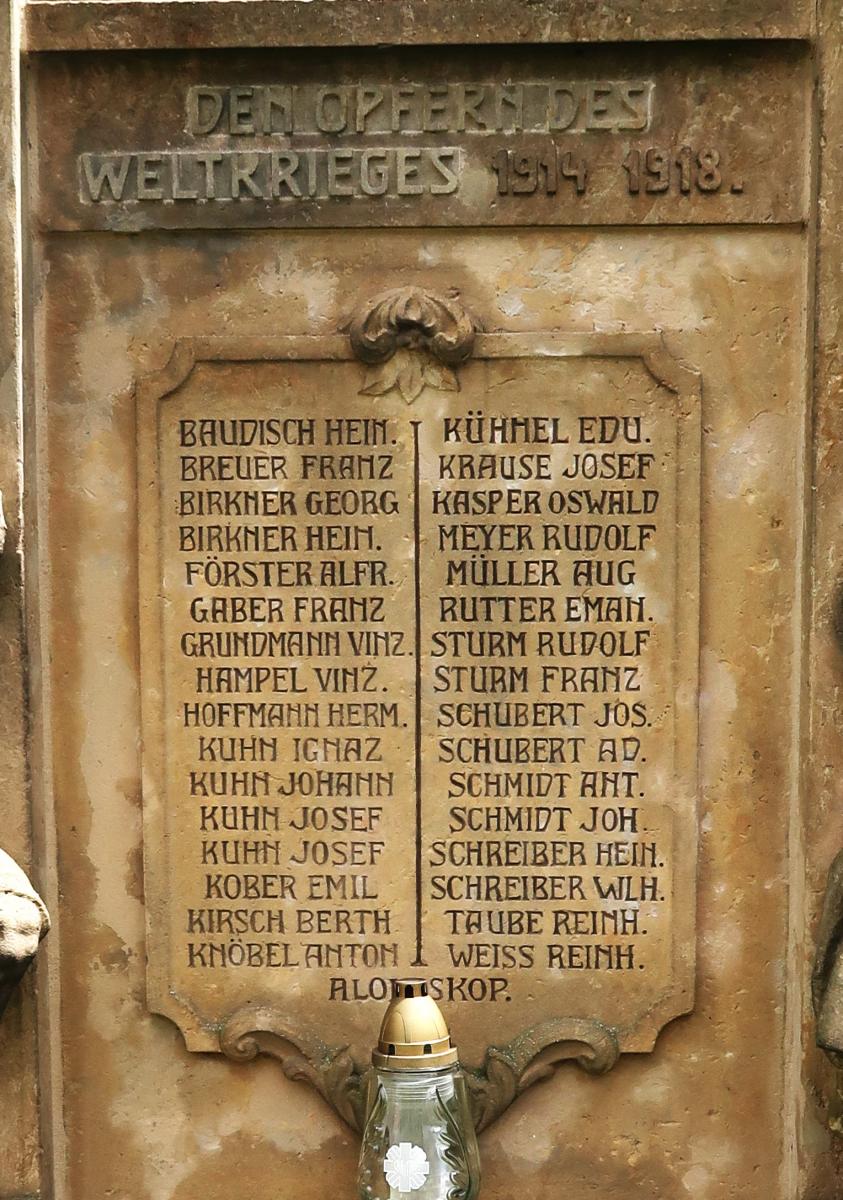 DEN OPFERN DES
WELTKRIEGES 1914 1918.
BAUDISCH HEIN.
BREUER FRANZ
BIRKNER GEORG
BIRKNER HEIN.
FÖRSTER ALFR.
GABER FRANZ
GRUNDMANN VINZ.
HAMPEL VINZ.
HOFFMANN HERM.
KUHN IGNAZ
KUHN JOHANN
KUHN JOSEF
KUHN JOSEF
KOBER EMIL
KIRSCH BERTH
KNÖBEL ANTON
KÜHNEL EDU.
KRAUSE JOSEF
KASPER OSWALD
MEYER RUDOLF
MÜLLER AUG
RUTTER EMAN.
STURM RUDOLF
STURM FRANZ
SCHUBERT JOS.
SCHUBERT AD.
SCHMIDT ANT.
SCHMIDT JOH.
SCHREIBER HEIN.
SCHREIBER WLH.
TAUBE REINH.
WEISS REINH.